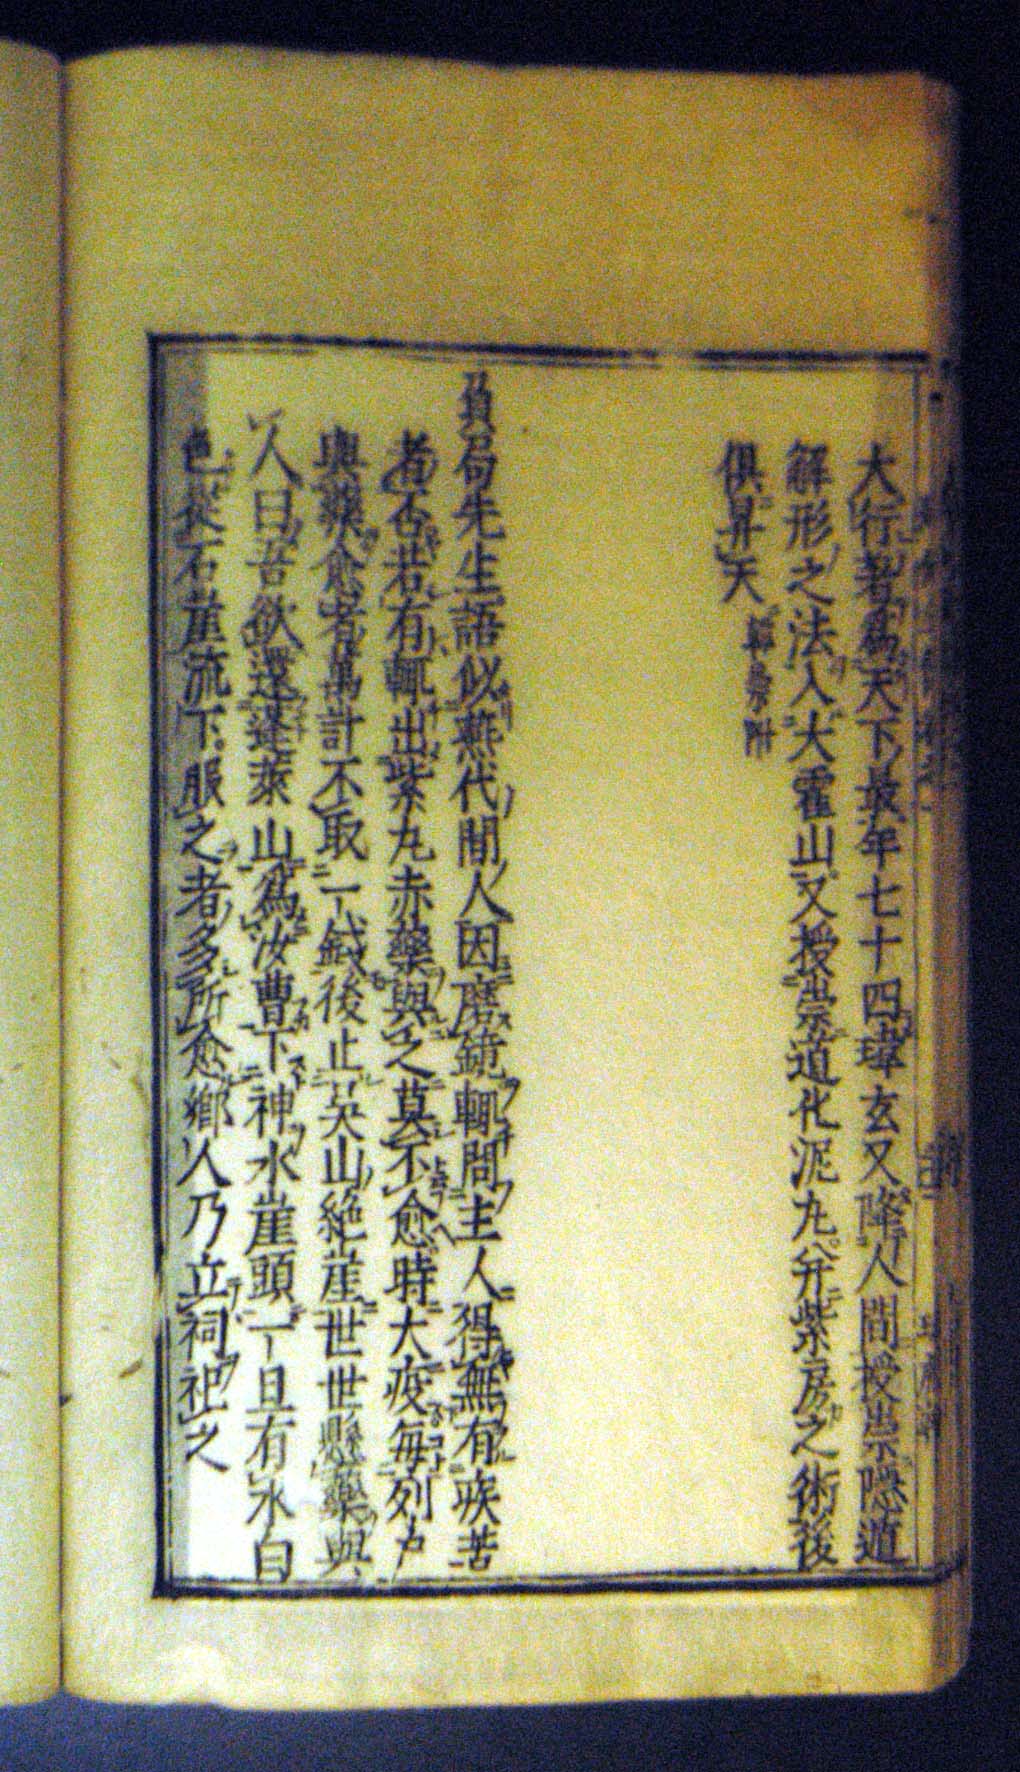 大行著爲天下最年七十四瑋玄又降人間授崇隱遁
解形之法入大霍山又授崇道化泥丸弁紫房之術後
俱昇天 韓崇附
負局先生語似燕代間人因磨鏡輒問主人得無有疾苦
者否若有輒出紫丸赤藥與之莫不愈時大疫毎列戶
與藥愈者萬計不取一錢後止吴山絶崖世世懸藥與
人曰吾欲還蓬萊山爲汝曹下神水崖頭一旦有水白
色從石崖流下服之者多所愈鄉人乃立祠祀之